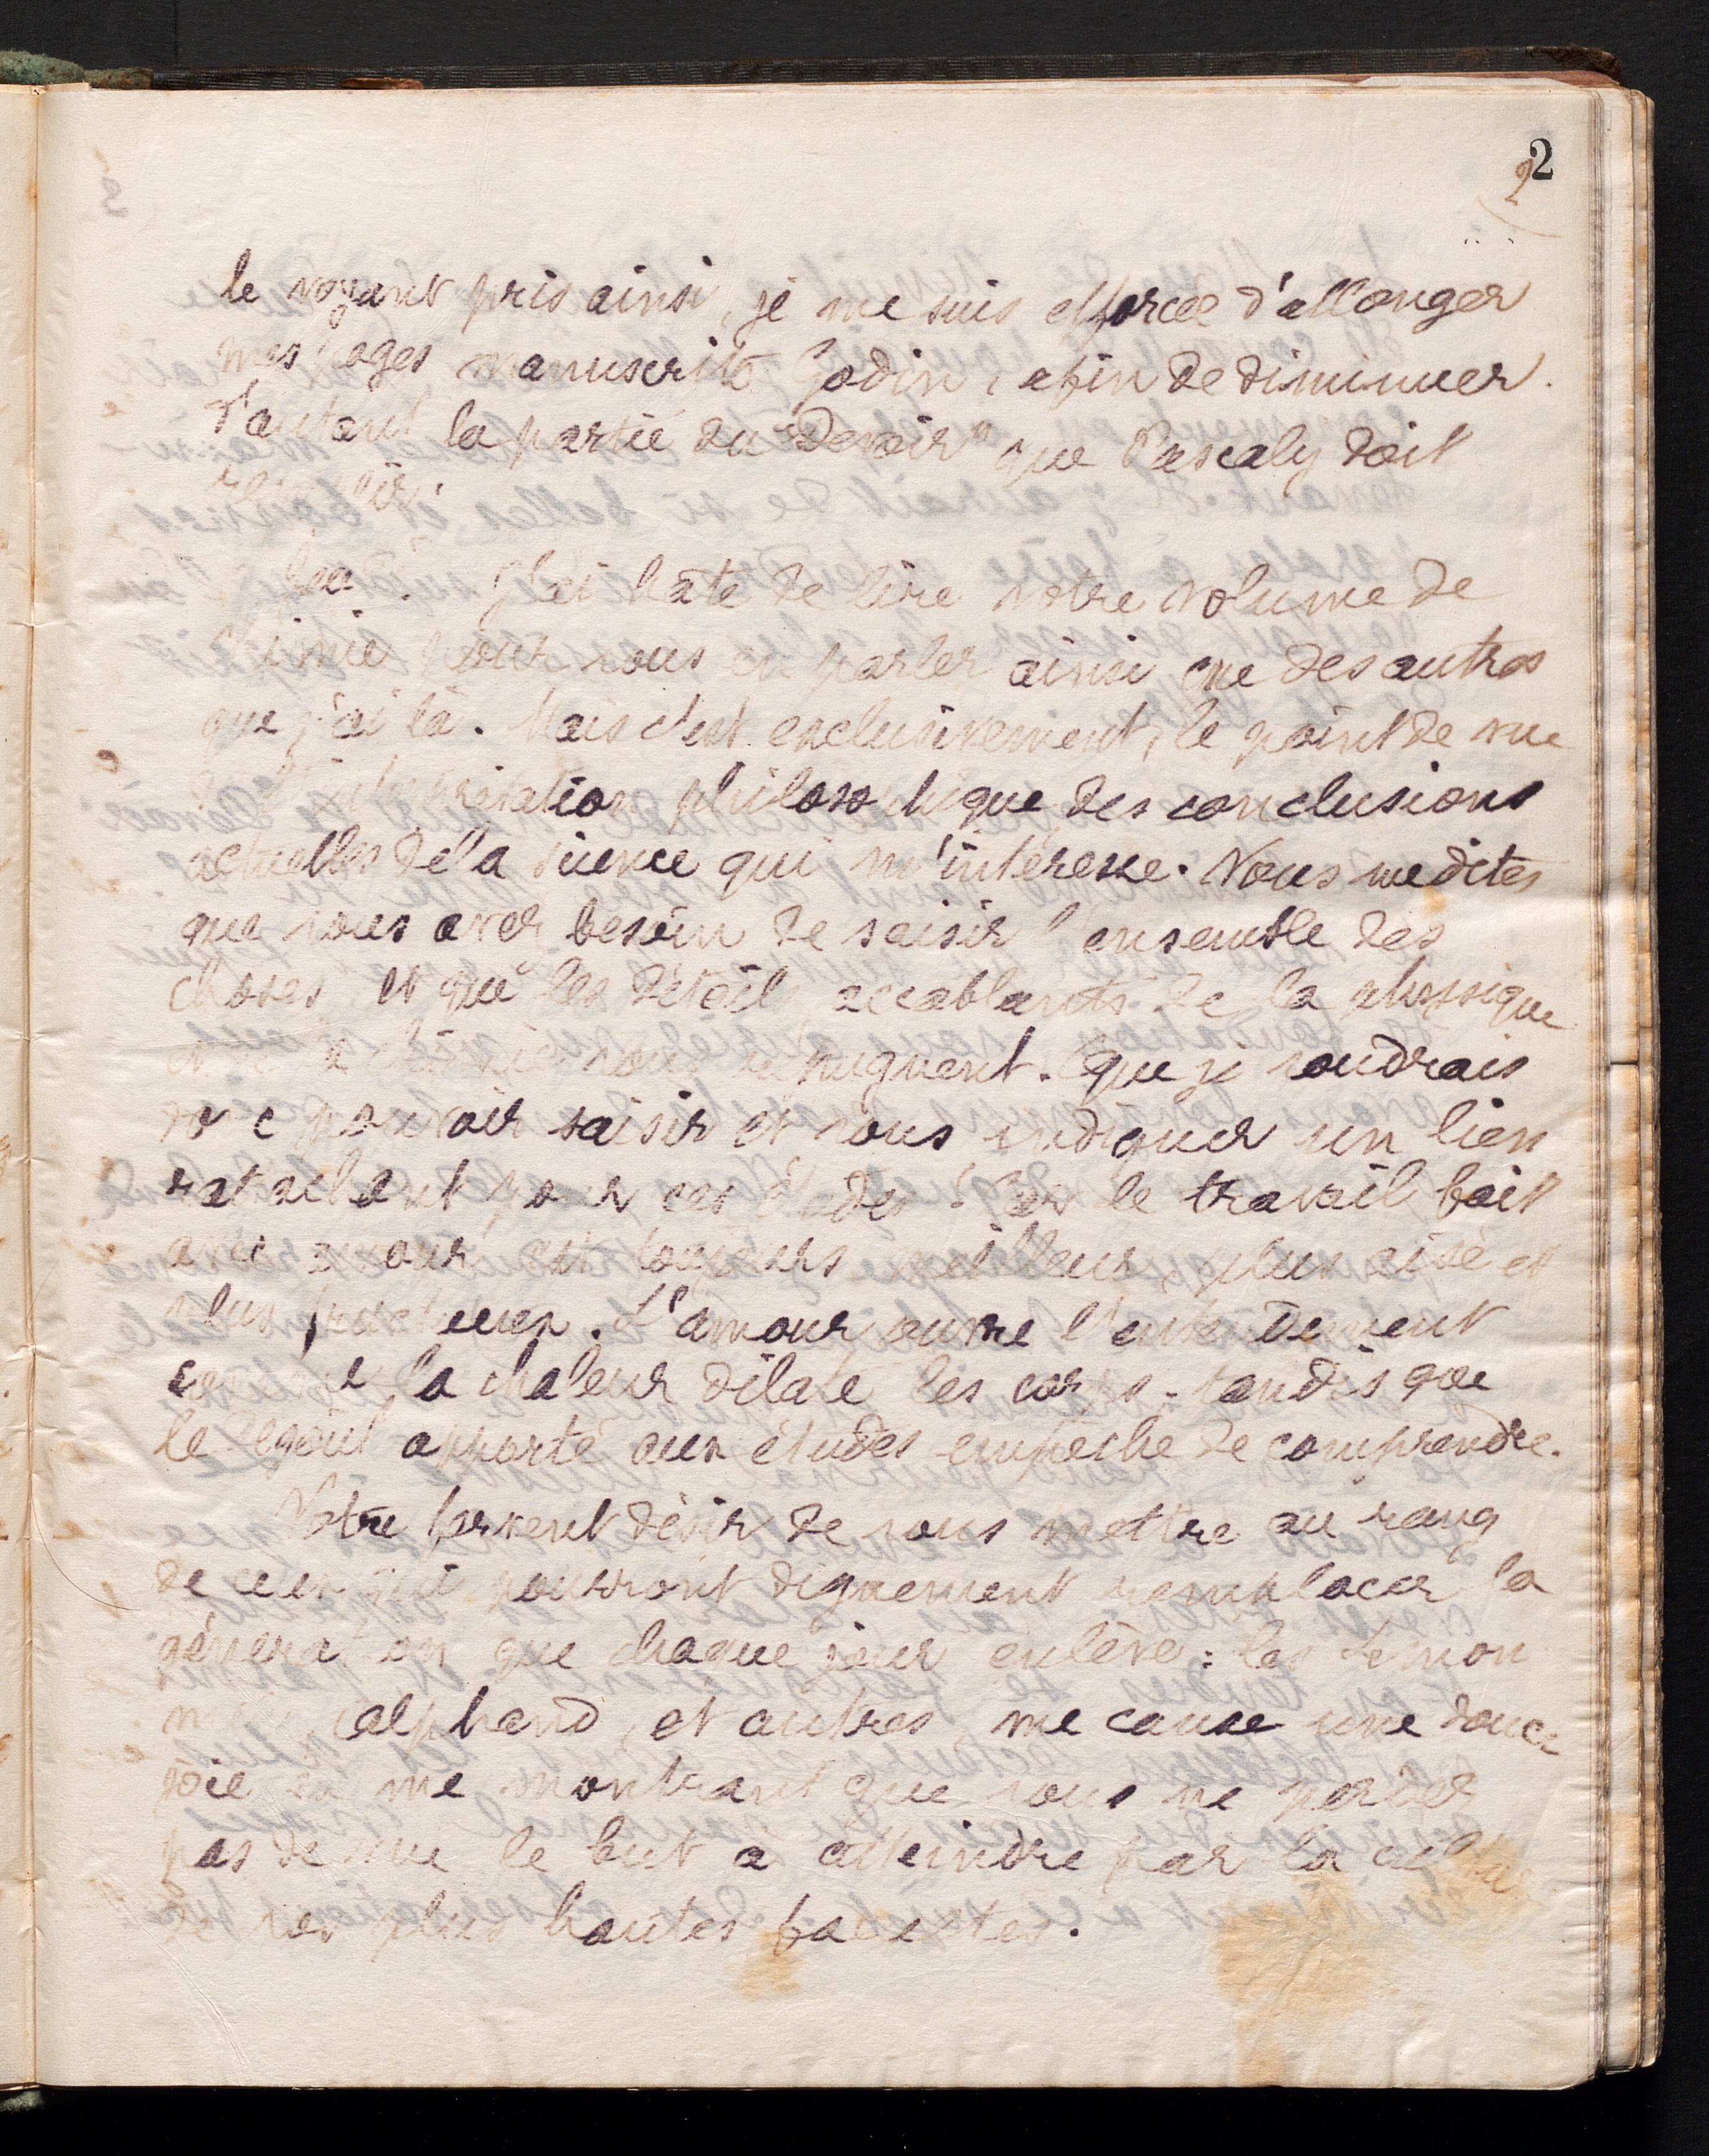 2
2
le voyant pris ainsi, je me suis efforcée d'allonger
mes pages manuscrits Godin, afin de diminuer
d'autant la partie du "Devoir" que Pascaly doit

J'ai hâte de lire votre volume de
chimie pour vous en parler ainsi que des autres
que j'ai là. Mais c'est exclusivement, le point de vue
de l'interprétation philosophique des conclusions
actuelles de la science qui m'intéresse. Vous me dites
que vous avez besoin de saisir l'ensemble des
choses et que les détails accablants de la physique
et de la chimie vous répugnent. Que je voudrais
donc pouvoir saisir et vous indiquer un lien
rattachant pour ces études ! Car le travail fait
avec amour est toujours meilleur, plus aisé et
plus fructueux. L'amour ouvre l'entendement
comme la chaleur dilate les corps ; tandis que
le dégoût apporté aux études empêche de comprendre.
Votre fervent désir de vous mettre au rang
de ceux qui pourront dignement remplacer la
génération que chaque jour enlève : les Lemon
nier, Alphand, et autres, me cause une douce
joie en me montrant que vous ne perdez
pas de vue le but à atteindre par la culture
de nos plus hautes facultés.